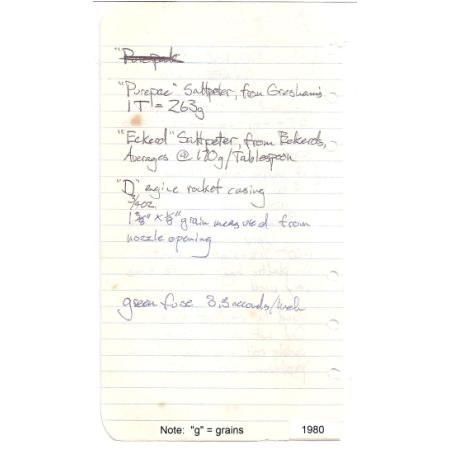 "Purepak"
"Purepac" Saltpeter, from Gresham's
1T = 263g
"Eckerd" Saltpeter, from Eckerds,
Averages @ 170g/Tablespoon
"D" engine rocket casing
3/4oz.
1 3/8" x 1/8" grain measured from
nozzle opening
green fuse 3.5 seconds/inch
Note: "g" = grains
1980